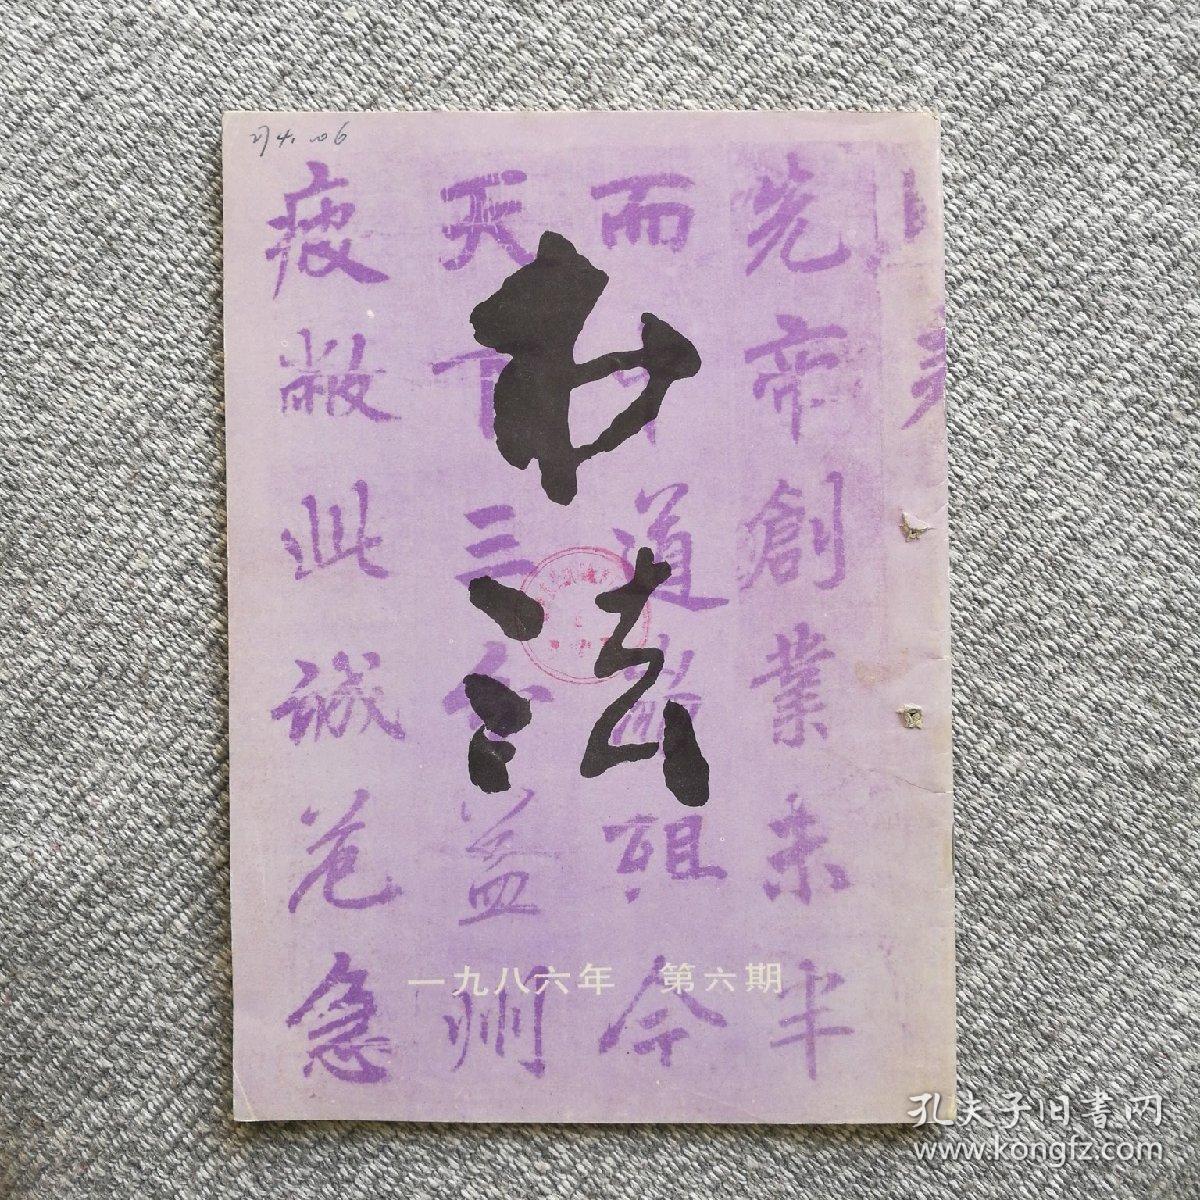 书法
先帝創業未半
而中道崩殂今
天下三分益州
疲敝此誠危急
一九八六年 第六期
孔夫子旧書网
www.kongfz.com